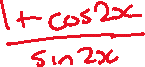 1 + cos2x
sin2x